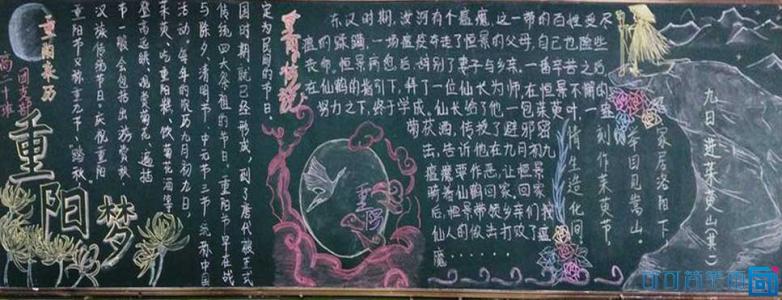 重阳来历
团支部
高二十班
重阳梦
重阳节又称重九节、“踏秋”
汉族传统节日。庆祝重阳
节一般会包括出游赏秋、
登高远眺、观赏菊花、遍插
茱萸、吃重阳糕、饮菊花酒等
活动。每年的农历九月初九日,
与除夕、清明节、中元节三节统称中国
传统四大祭祖的节日。重阳节早在战
国时期就已经形成,到了唐代被正式
定为民间的节日。
重阳传说
东汉时期,汝河有个瘟魔,这一带的百姓受尽
瘟的蹂躏,一场瘟疫夺走了恒景的父母,自己也险些
丧命。恒景病愈后,辞别了妻子与乡亲。一番辛苦之后
在仙鹤的指引下,拜了一位仙长为师在恒景不懈的
努力之下,终于学成。仙长给了他一包茱萸叶,一盅
菊花酒,传授了避邪密
法,告诉他在九月初九
瘟魔要作恶,让恒景
骑着仙鹤回家。回家
后,恒景带领乡亲们按
仙人的做法打败了瘟
魔......
重阳
九日进茱萸山(其一)
家居洛阳下
举目见嵩山。
刻作茱萸节,
情生造化间
可可简笔画